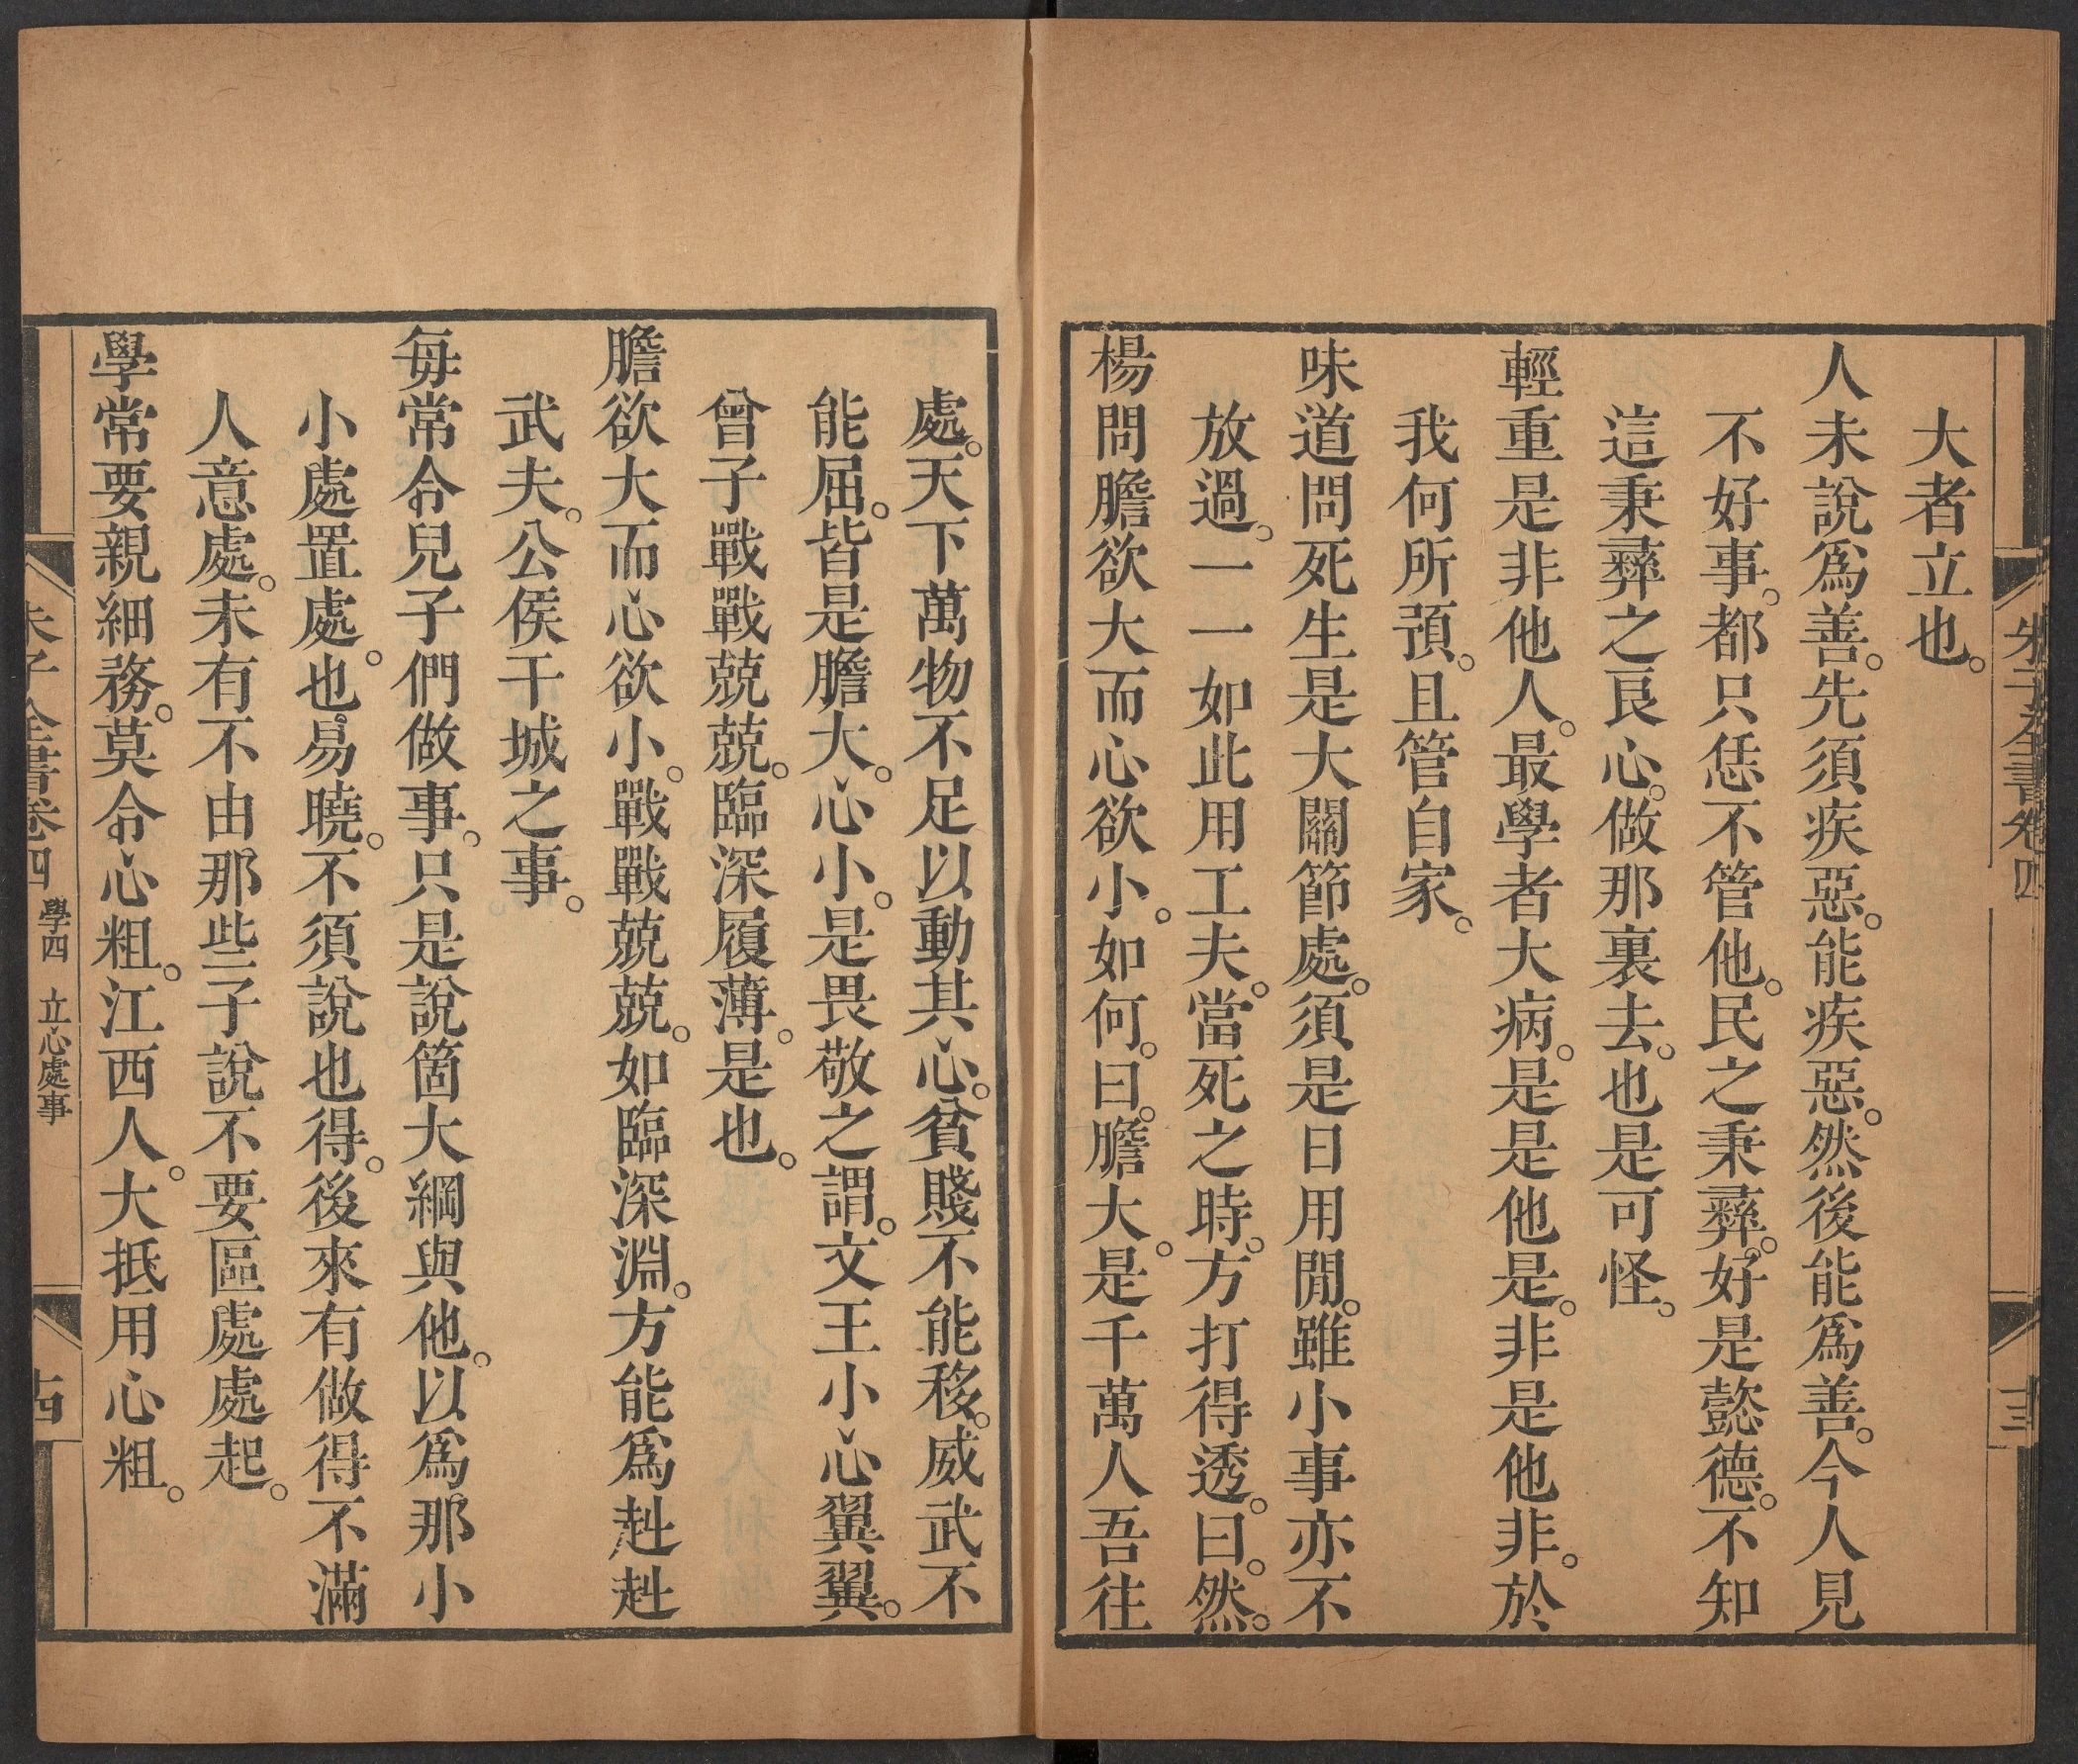 朱子全書卷四
十三
大者立也。
人未說爲善。先須疾惡。能疾惡。然後能爲善。今人見
不好事。都只恁不管他。民之秉彝。好是懿德。不知
這秉彝之良心。做那裏去。也是可怪。
輕重是非他人。最學者大病。是是他是。非是他非。於
我何所預。且管自家。
味道問死生是大關節處。須是日用閒。雖小事亦不
放過。一一如此用工夫。當死之時。方打得透。曰。然。
楊問膽欲大而心欲小。如何。曰。膽大。是千萬人吾往
處。天下萬物不足以動其心。貧賤不能移。威武不
能屈。皆是膽大。心小。是畏敬之謂。文王小心翼翼。
曾子戰戰兢兢。臨深履薄。是也。
膽欲大而心欲小。戰戰兢兢。如臨深淵。方能爲赳赳
武夫。公侯干城之事。
每常令兒子們做事。只是說箇大綱與他。以爲那小
小處置處。也易曉。不須說也得。後來有做得不滿
人意處。未有不由那些子說不要區處處起。
學常要親細務。莫令心粗。江西人。大抵用心粗。
朱子全書卷四 學四 立心處事
十四